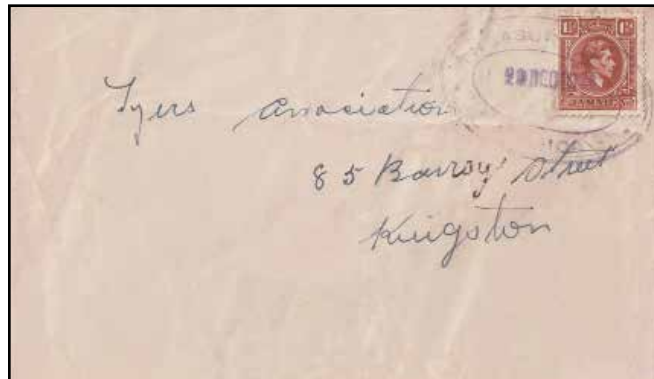 1½ᴰ 1½ᴰ
JAMAICA
Tyers Association
85 Barry Street
Kingston